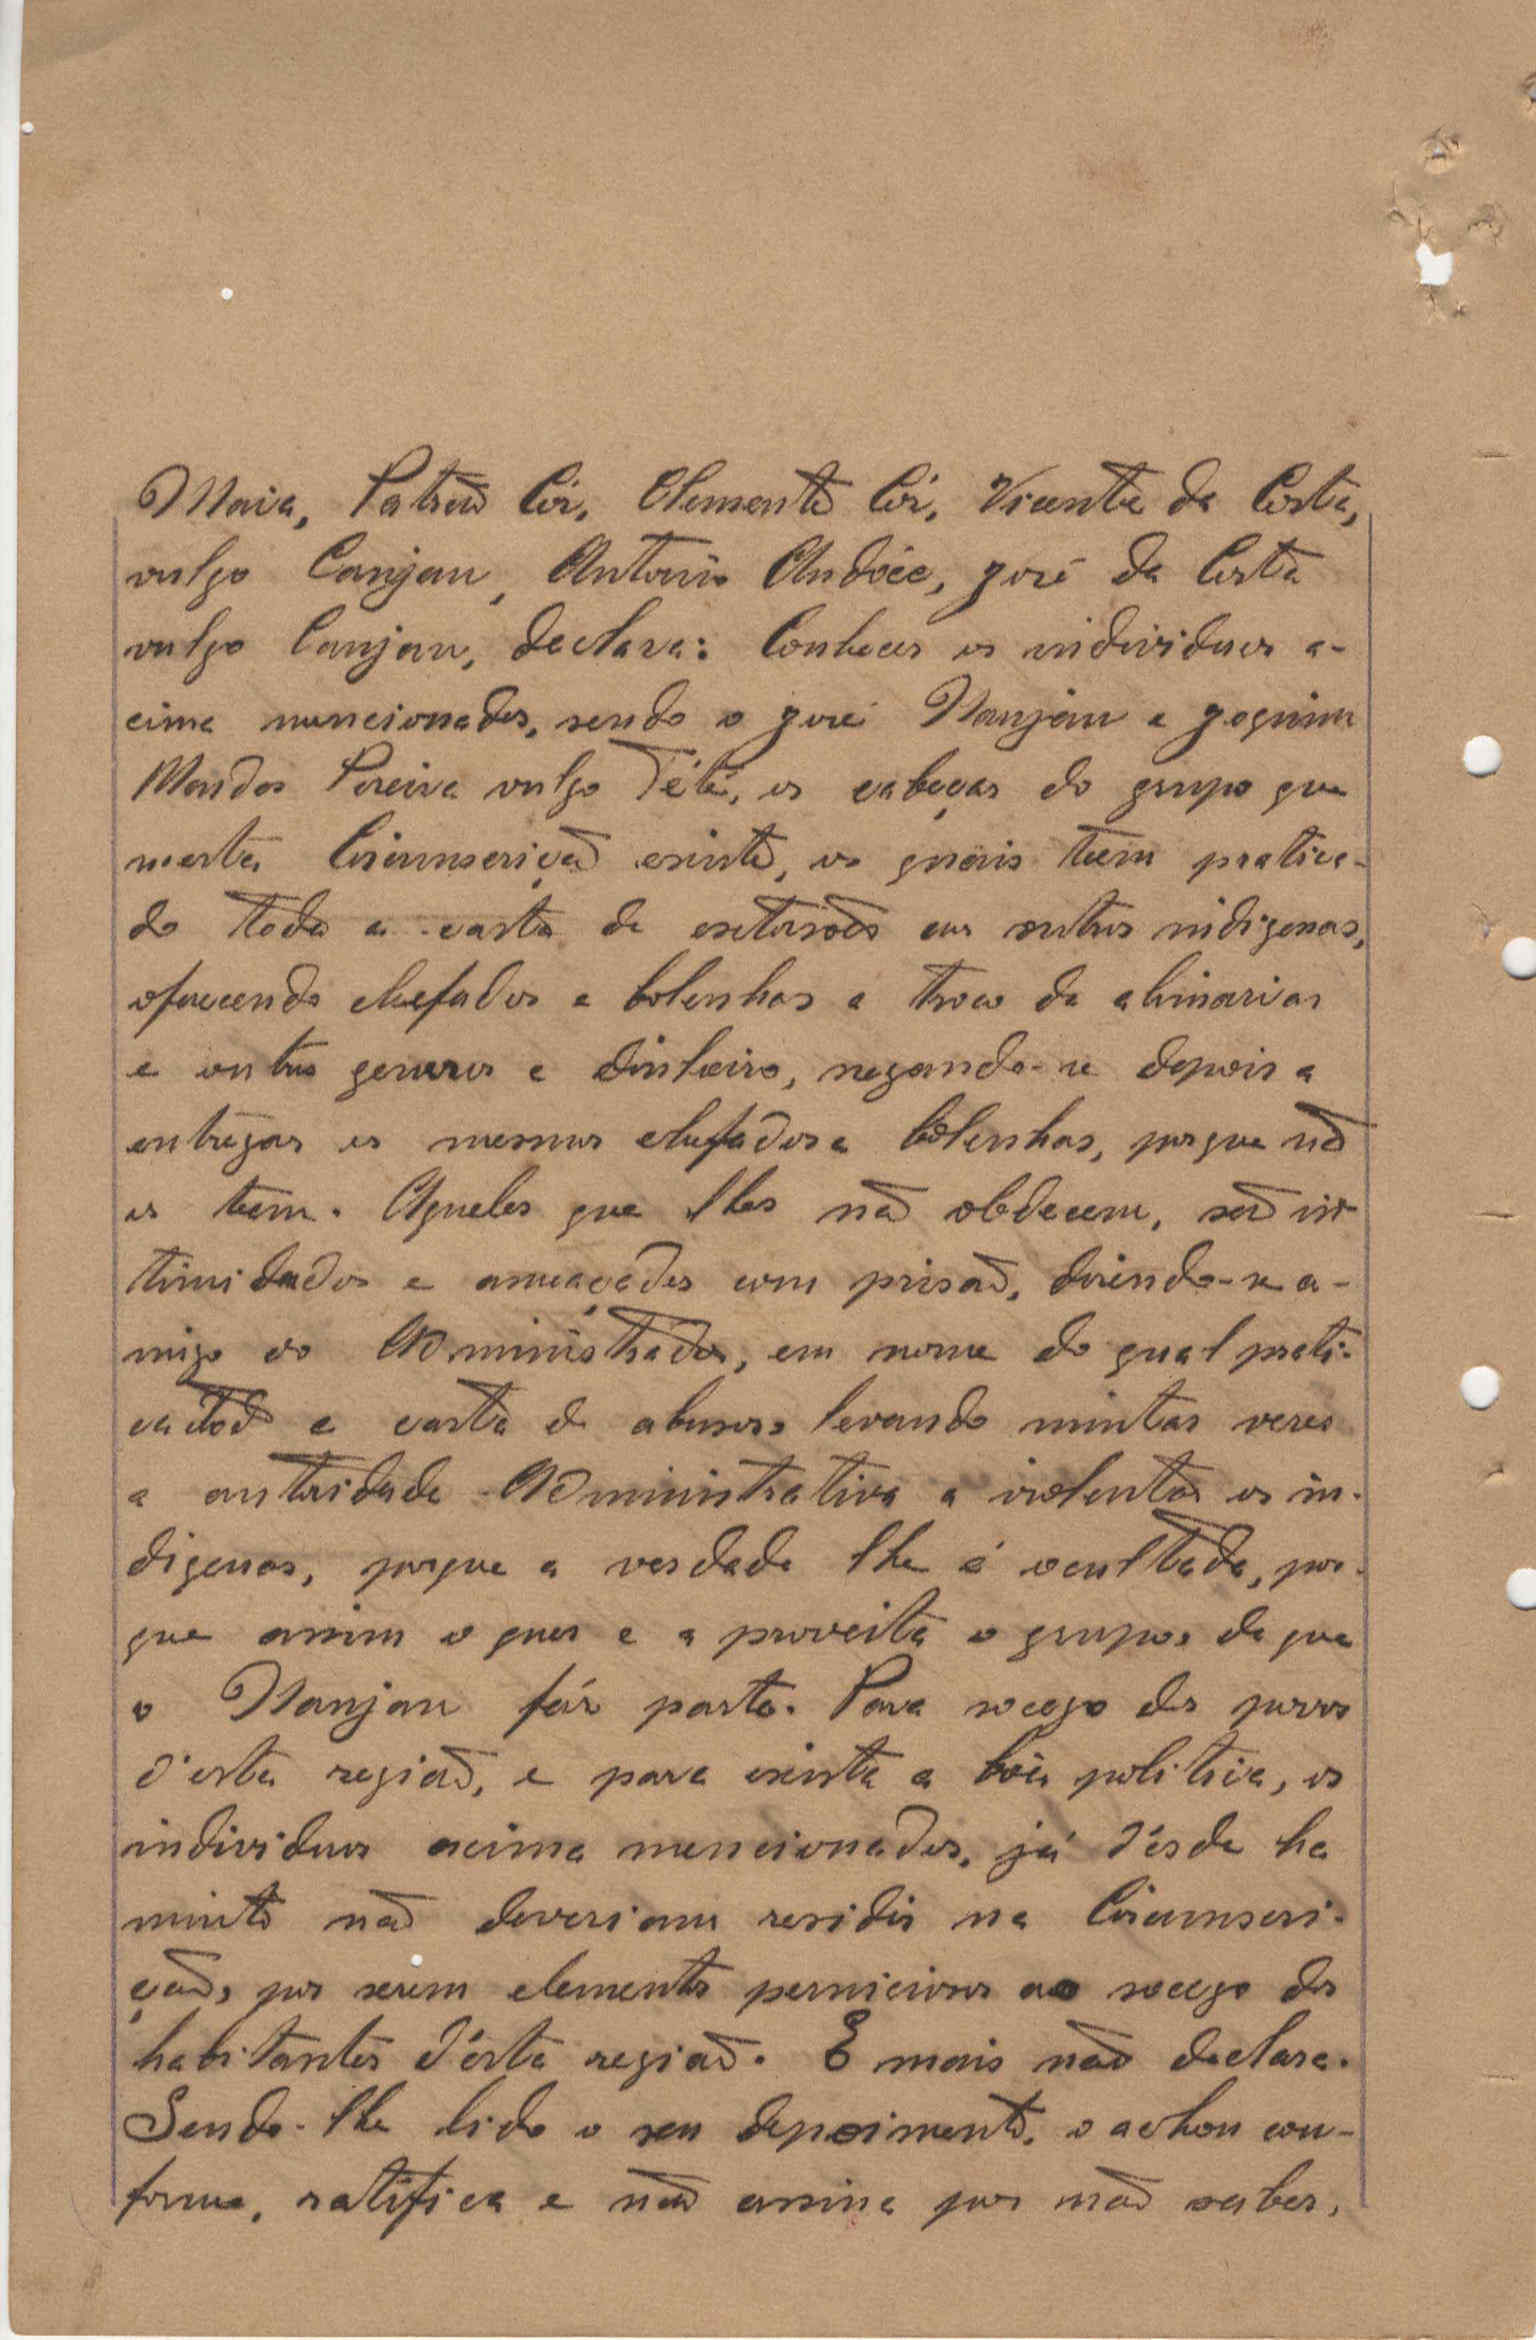 Maia, Patrão Có, Clemente Có, Vicente da Costa,
vulgo Canjau, Antonio Andôce, José da Costa
vulgo Canjau, declara: Conhecer os individuos a-
cima muncionados, sendo o José Nanjau e Joquim
Mendes Pereira vulgo Tété, os cabeças do grupo que
nesta Circunscrição existe, os quais teem pratica-
do toda a casta de exetorsões em outros indigenas,
oferecendo chefados e bolenhas a troco de alimarias
e outros generos e dinheiro, negando-se depois a
entregar os mesmos chefados e bolenhas, porque não
os teem. Aqueles que lhes não obdecem, são in-
timidados e ameaçados com prisão, dizendo-se a-
migo do Administrador, em nome do qual prati-
ca toda a casta de abusos, levando muitas vezes
a autoridade Administrativa a violentar os in-
digenas, porque a verdade lhe é ocultada, por-
que assim o quer e a proveita o grupo, de que
o Nanjau fáz parte. Para socego dos povos
d'esta região, e para exista a bôa politica, os
individuos acima mencionados, já d'ésde ha
muito não deveriam residir na Circunscri-
ção, por serem elementos perniciosos ao socego dos
habitantes d'ésta região. E mais não declara.
Sendo-lhe lido o seu depoimento, o achou con-
forme, ratifica e não assina por não saber,